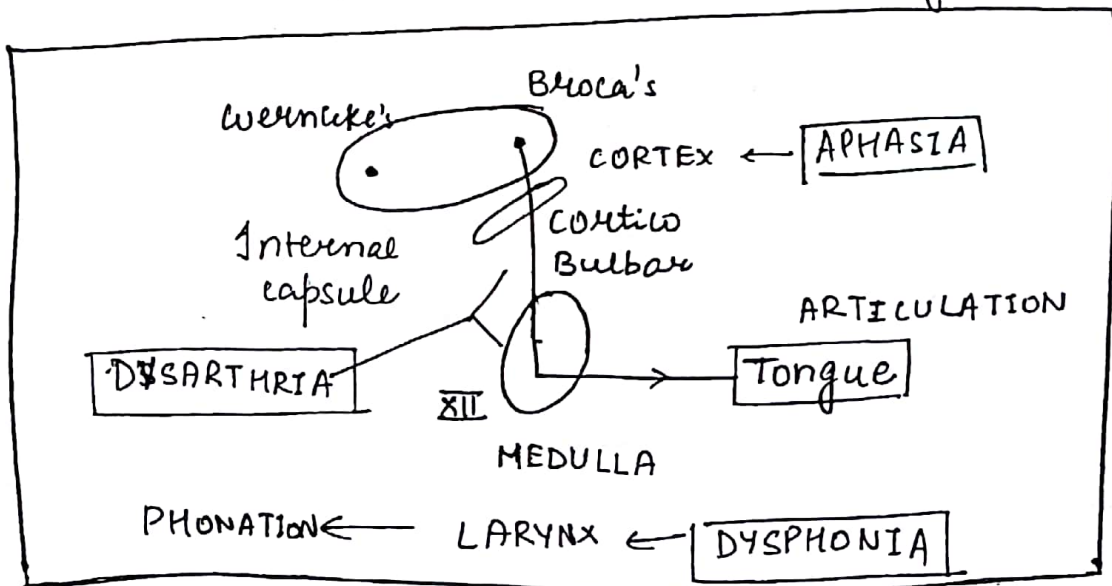 Broca's
Wernicke's
CORTEX ← APHASIA
Internal capsule
Cortico Bulbar
ARTICULATION
DYSARTHRIA
Tongue
XII
MEDULLA
PHONATION ← LARYNX ← DYSPHONIA